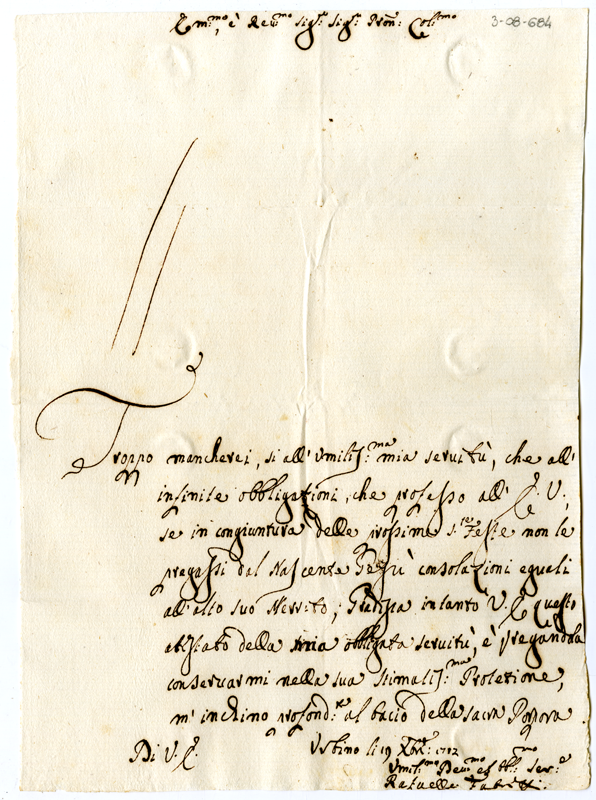 Em:mo, è Reu:mo Sig:r Sig:r Pron: Col:mo
3-08-684
Troppo mancherei, si all' Vmiliss:ma mia seruitù, che all'
infinite obbligazioni, che professo all' E: V:,
se in congiuntura delle prossime S:te Feste non le
pregassi dal Nascente Gesù consolazioni eguali
all'alto suo Merrito; Gradisca intanto V: E questo
attestato della mia obligata seruitù, è pregandola
conseruarmi nella sua stimatiss:ma Protetione,
m' inchino profond:te al bacio della sacra Porpora.
Di V: E:
Vrbino li 19 Xbre: 1712
Vmil:mo Deu:mo et Obl:mo Ser:e
Rafaelle